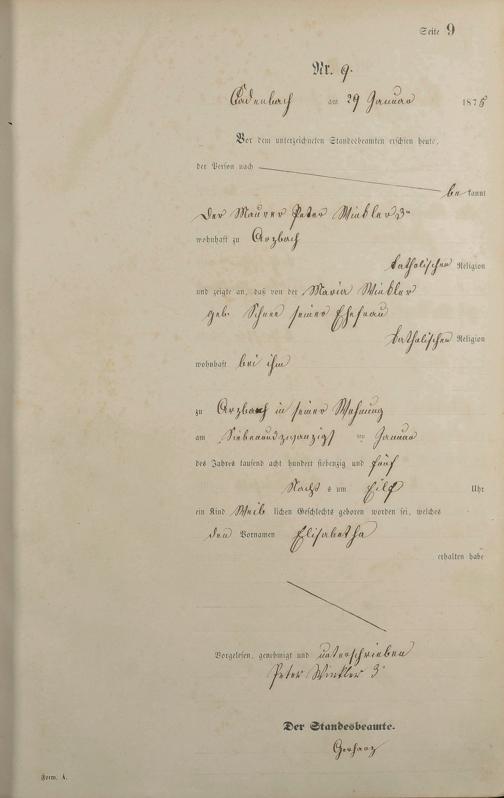 Seite 9
Nr. 9.
Cadenbach am 29 Januar 1875
Vor dem unterzeichneten Standesbeamten erschien heute,
der Person nach
be kannt
der Maurer Peter Winkler 3r
wohnhaft zu Arzbach
katholischer Religion
und zeigte an, daß von der Maria Winkler
geb. Schnee seiner Ehefrau
katholischer Religion
wohnhaft bei ihm
zu Arzbach in seiner Wohnung
am Siebenundzwanzigst en Januar
des Jahres tausend acht hundert siebenzig und fünf
Nacht s um Eilf Uhr
ein Kind Weib lichen Geschlechts geboren worden sei, welches
den Vornamen Elisabetha
erhalten habe
Vorgelesen, genehmigt und unterschrieben
Peter Winkler 3r
Der Standesbeamte.
Gerharz
Form. A.